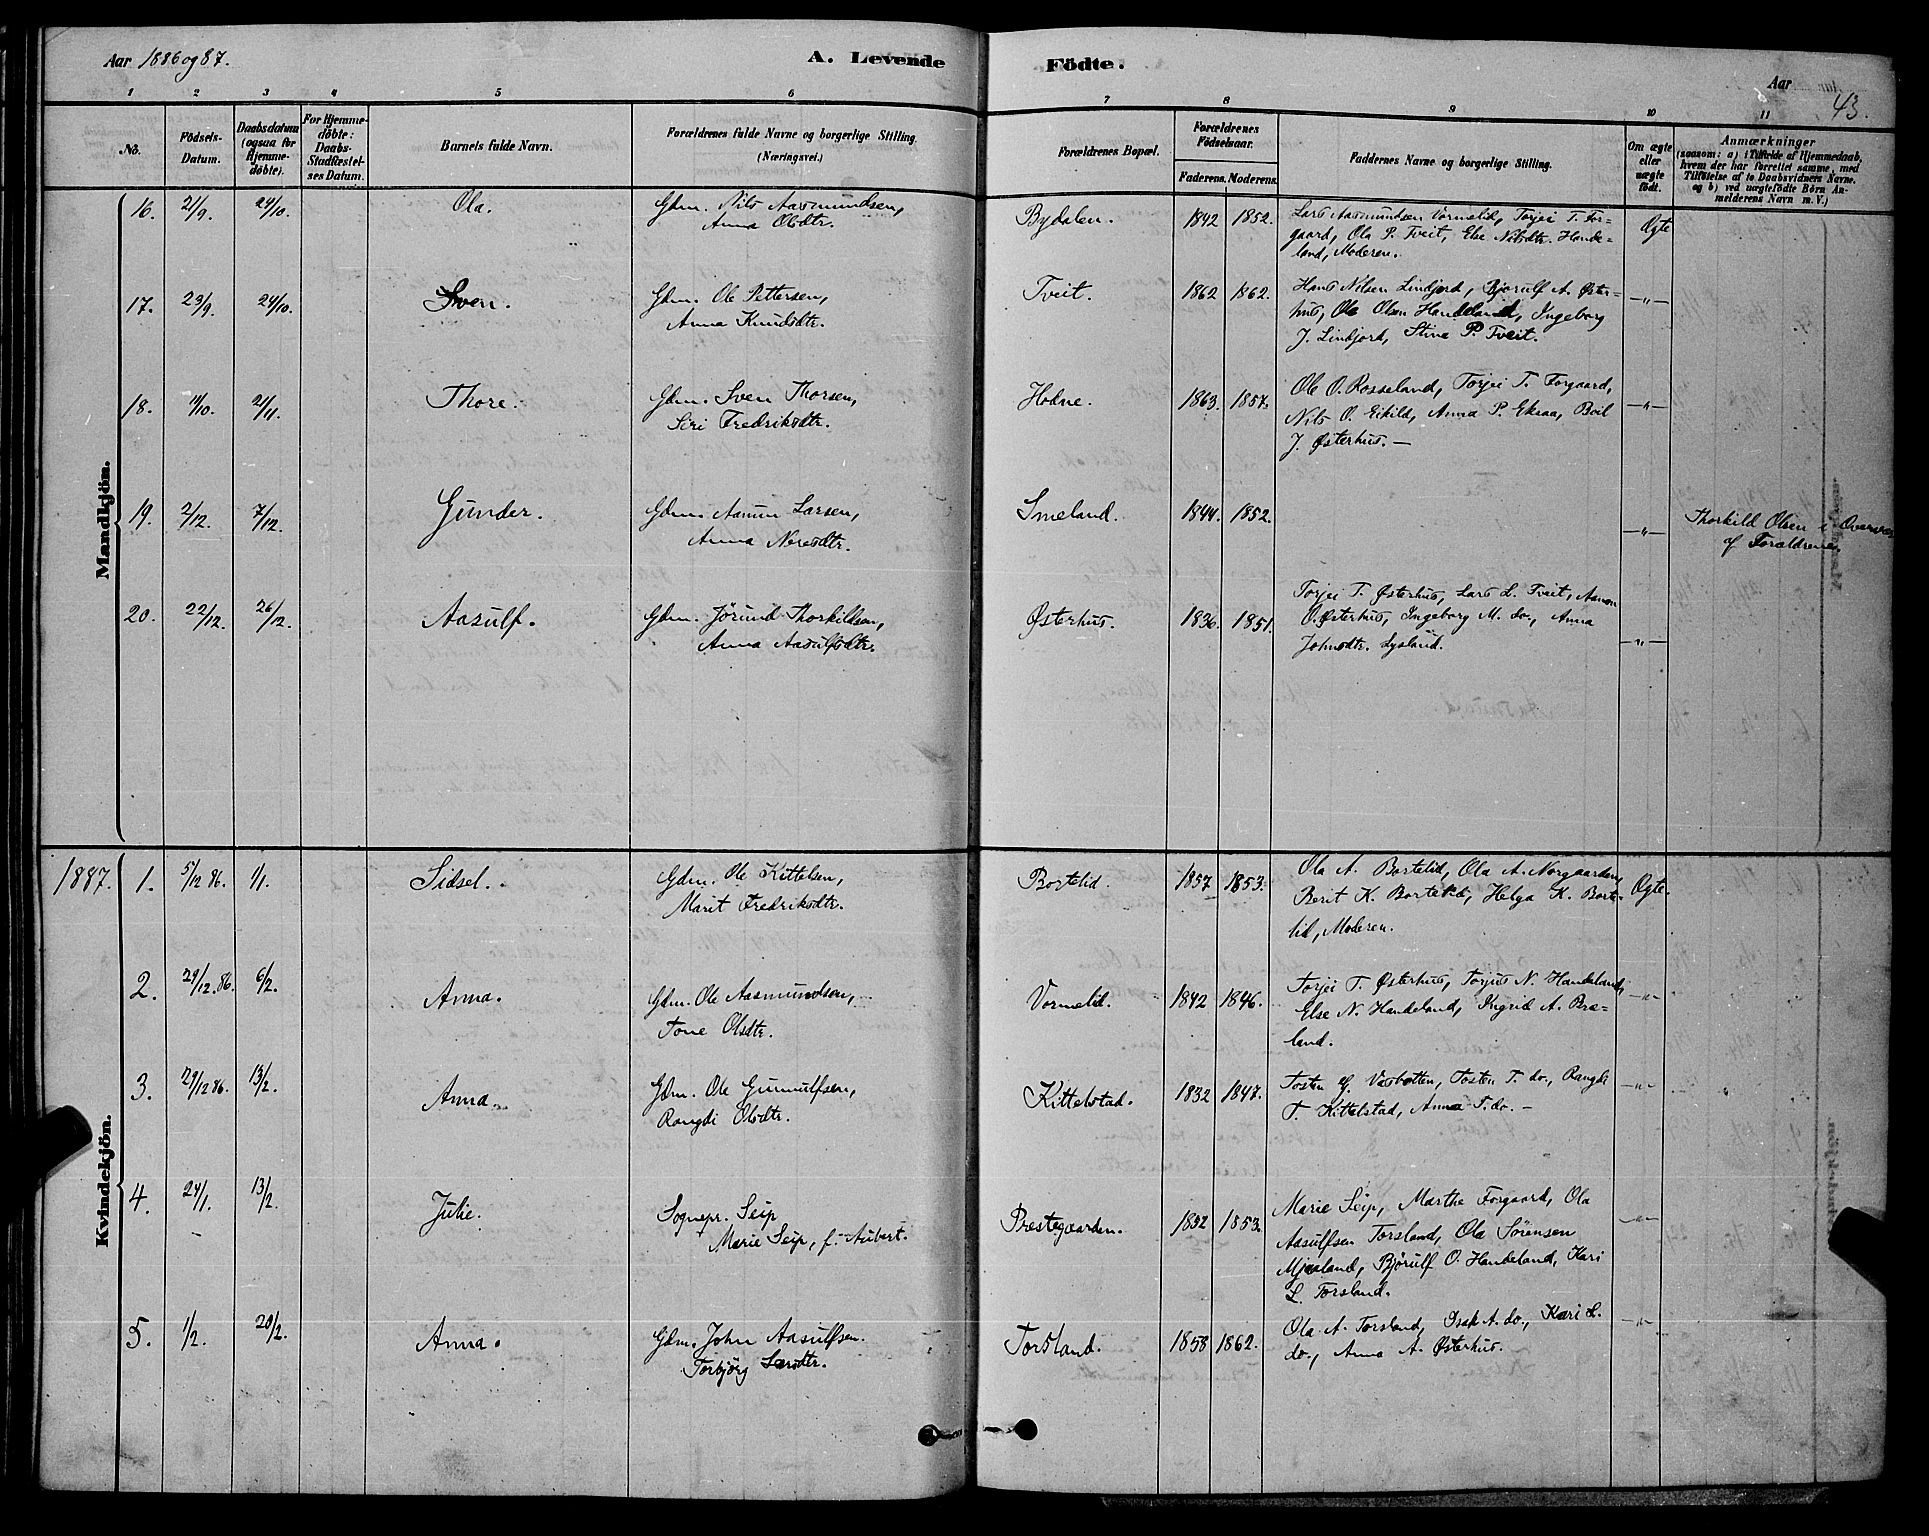 Aar 1886 og 87.
A. Levende Födte.
Aar
43.
1 2 3 4 5 6 7 8 9 10 11
No.
Födsels-
Datum.
Daabsdatum
(ogsaa for
Hjemme-
döbte).
For Hjemme-
döbte:
Daabs-
Stadfæstel-
ses Datum.
Barnets fulde Navn.
Forældrenes fulde Navne og borgerlige Stilling.
(Næringsvei.)
Forældrenes Bopæl.
Forældrenes
Födselsaar.
Faderens. Moderens.
Faddernes Navne og borgerlige Stilling.
Om ægte
eller
uægte
födt.
Anmærkninger
(saasom: a) i Tilfælde af Hjemmedaab,
hvem der har forrettet samme, med
Tilföielse af to Daabsvidners Navne.
og b) ved uægtefödte Börn An-
melderens Navn m. V.)
Mandkjön.
16. 21/9. 24/10. Ola. Gdm. Nils Aasmundsen,
Anna Olsdtr.
Bydalen. 1842 1852. Lars Aasmundsen Vormelid, Torjei T. For-
gaard, Ola P. Tveit, Else Nilsdtr. Hande-
land, Moderen.
Ægte
17. 23/9. 24/10. Sven. Gdm. Ole Pettersen,
Anna Knudsdtr.
Tveit. 1862 1862. Hans Nilsen Lindjord, Bjørulf A. Øster-
hus, Ole Olsen Handeland, Ingeborg
J. Lindjord, Stina P. Tveit.
—"—
18. 11/10. 21/11. Thore. Gdm. Sven Thorsen,
Siri Fredriksdtr.
Hodne. 1863. 1857. Ole O. Rosseland, Torjei T. Forgaard,
Nils O. Eikild, Anna P. Eksaa, Boil
J. Østerhus. —
—"—
19. 2/12. 7/12. Gunder. Gdm. Aanun Larsen,
Anna Neresdtr.
Smeland. 1844. 1852.
—"—
Thorkild Olsen i Overvær
af Forældrene.
20. 22/12. 26/12. Aasulf. Gdm. Jörund Thorkildsen,
Anna Aasulfsdtr.
Østerhus. 1836. 1851. Torjei T. Østerhus, Lars L. Tveit, Aanon
O. Østerhus, Ingeborg M. do., Anna
Johnsdtr. Lysland.
—"—
Kvindekjön.
1887. 1. 5/12 86. 1/1. Sidsel. Gdm. Ole Kittelsen,
Marit Fredriksdtr.
Bortelid. 1857 1853. Ola A. Bortelid, Ola A. Norgaarden,
Berit K. Bortelid, Helga K. Borte-
lid, Moderen.
Ægte.
2. 29/12. 86. 6/2. Anna. Gdm. Ole Aasmundsen,
Tone Olsdtr.
Vormelid. 1842 1846. Torjei T. Østerhus, Torjus N. Handeland,
Else N. Handeland, Ingrid A. Bre-
land.
—"—
3. 29/12 86. 13/2. Anna. Gdm. Ole Gunnulfsen,
Rangdi Olsdtr.
Kittelstad. 1832 1847. Tosten G. Vasbotten, Tosten T. do., Rangdi
T. Kittelstad, Anna T. do. —
—"—
4. 24/1. 13/2. Julie. Sognepr. Seip
Marie Seip, f. Aubert.
Prestegaarden. 1852 1853. Marie Seip, Marthe Forgaard, Ola
Aasulfsen Torsland, Ola Sørensen
Mjaaland, Bjørulf O. Handeland, Kari
L. Torsland.
—"—
5. 1/2. 20/2. Anna. Gdm. John Aasulfsen.
Torbjörg Larsdtr.
Torsland. 1858 1862. Ola A. Torsland, Isak A. do., Kari L.
do., Anna A. Østerhus.
—"—